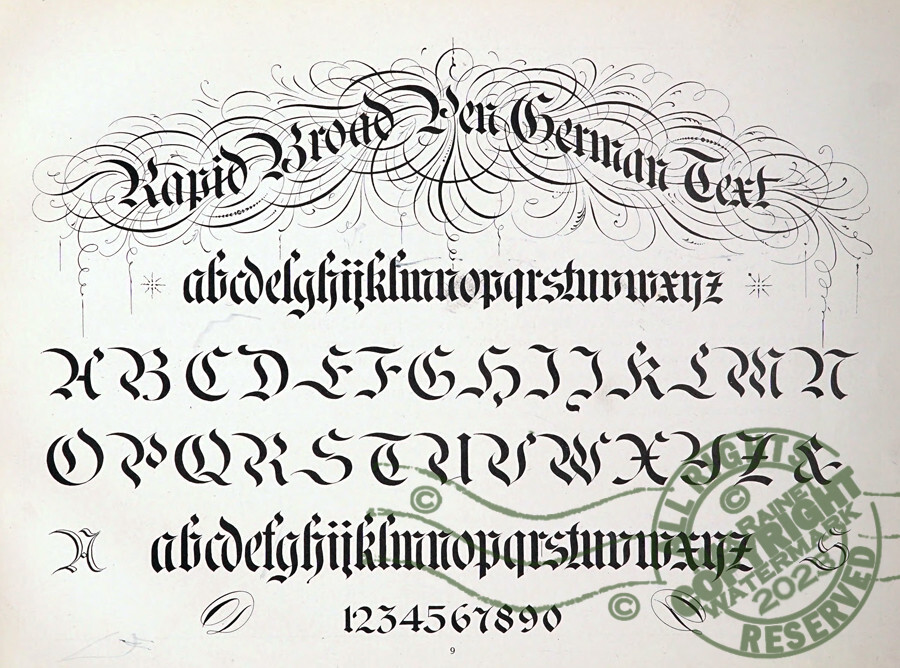 Rapid Broad Pen German Text
abcdefghijklmnopqrstuvwxyz
ABCDEFGHIJKLMN
OPQRSTUVWXYZ&
A abcdefghijklmnopqrstuvwxyz S
1234567890
9
ALL RIGHTS
COPYRIGHT
WATERMARK
RESERVED
©
©
©